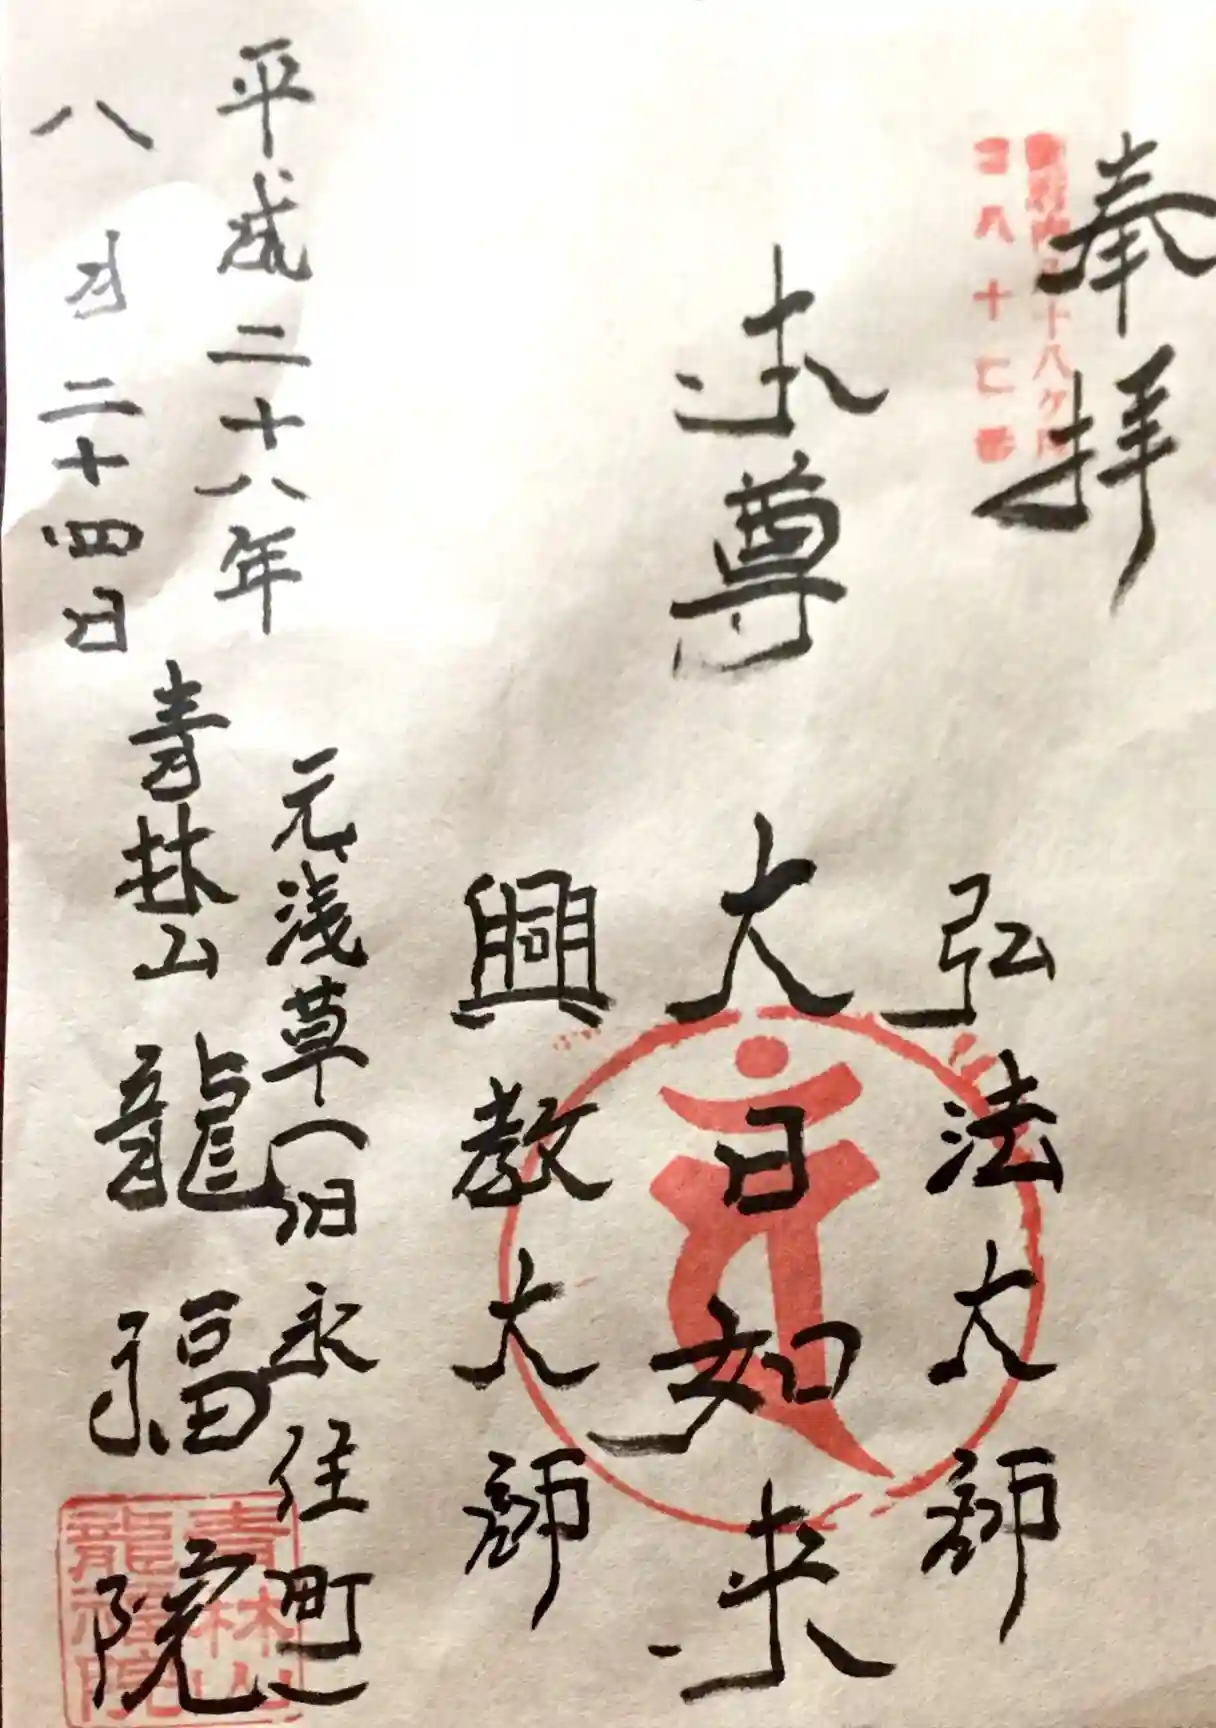 奉拝
八十七番
弘法大師
本尊
大日如来
興教大師
元浅草(旧永住町)
青林山 龍福院
平成二十八年
八月二十四日
青林山
龍福院